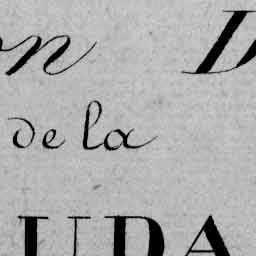 on D
de la
UDA